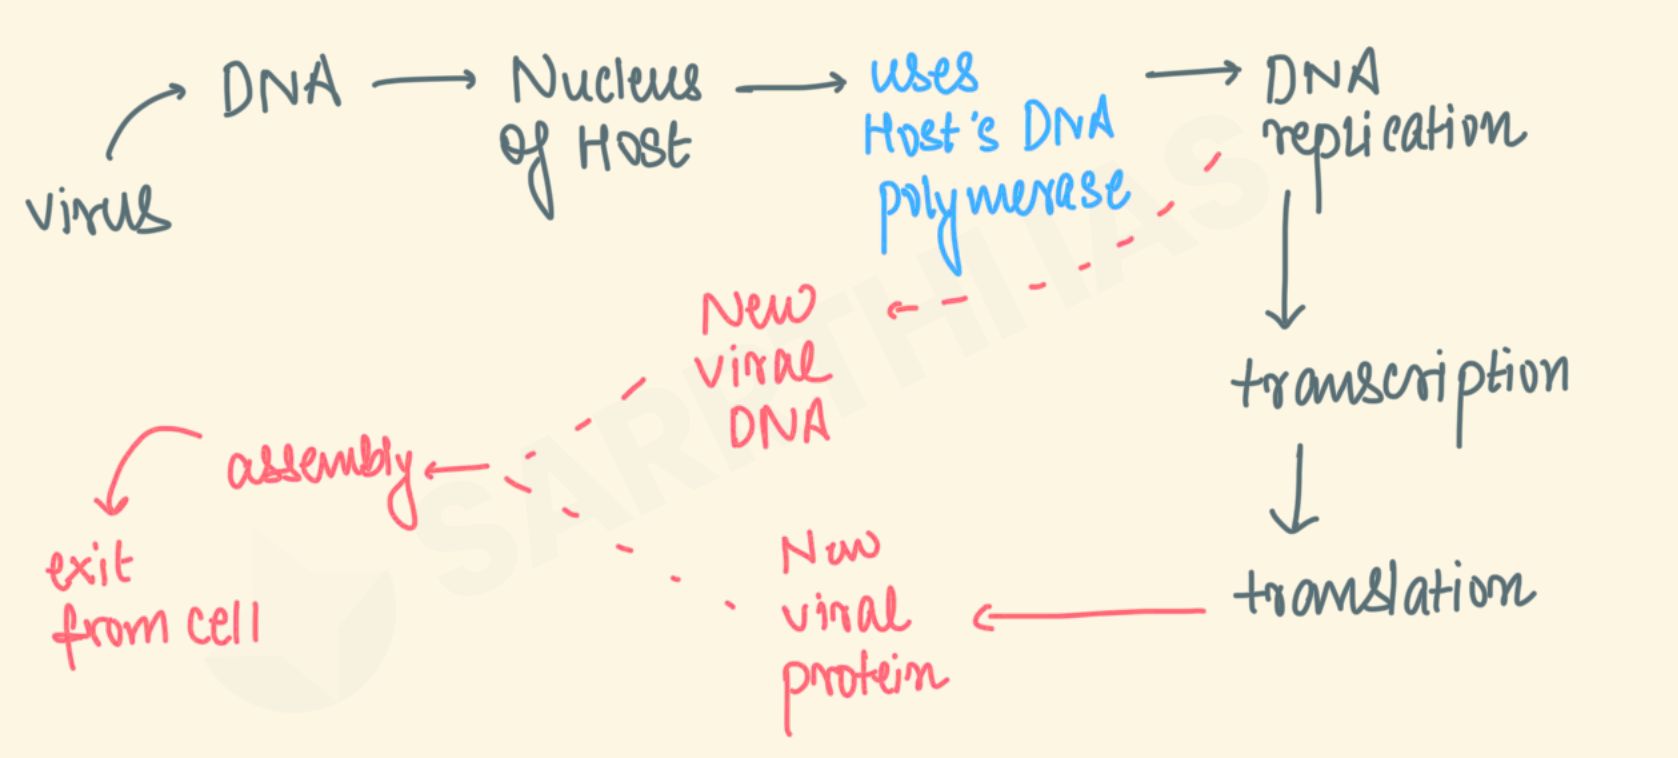 virus
DNA
Nucleus
of Host
uses
Host's DNA
polymerase
DNA
replication
transcription
translation
New
viral
DNA
New
viral
protein
assembly
exit
from cell
SARTHI IAS